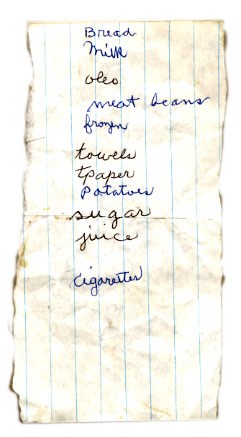 Bread
Milk
oleo
meat beans
frozen
towels
tpaper
potatoes
sugar
juice
cigarettes